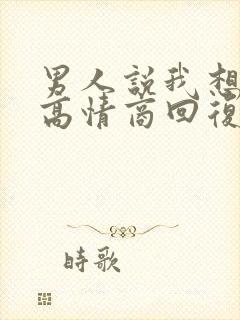 男人説我想
高情商回復
時歌